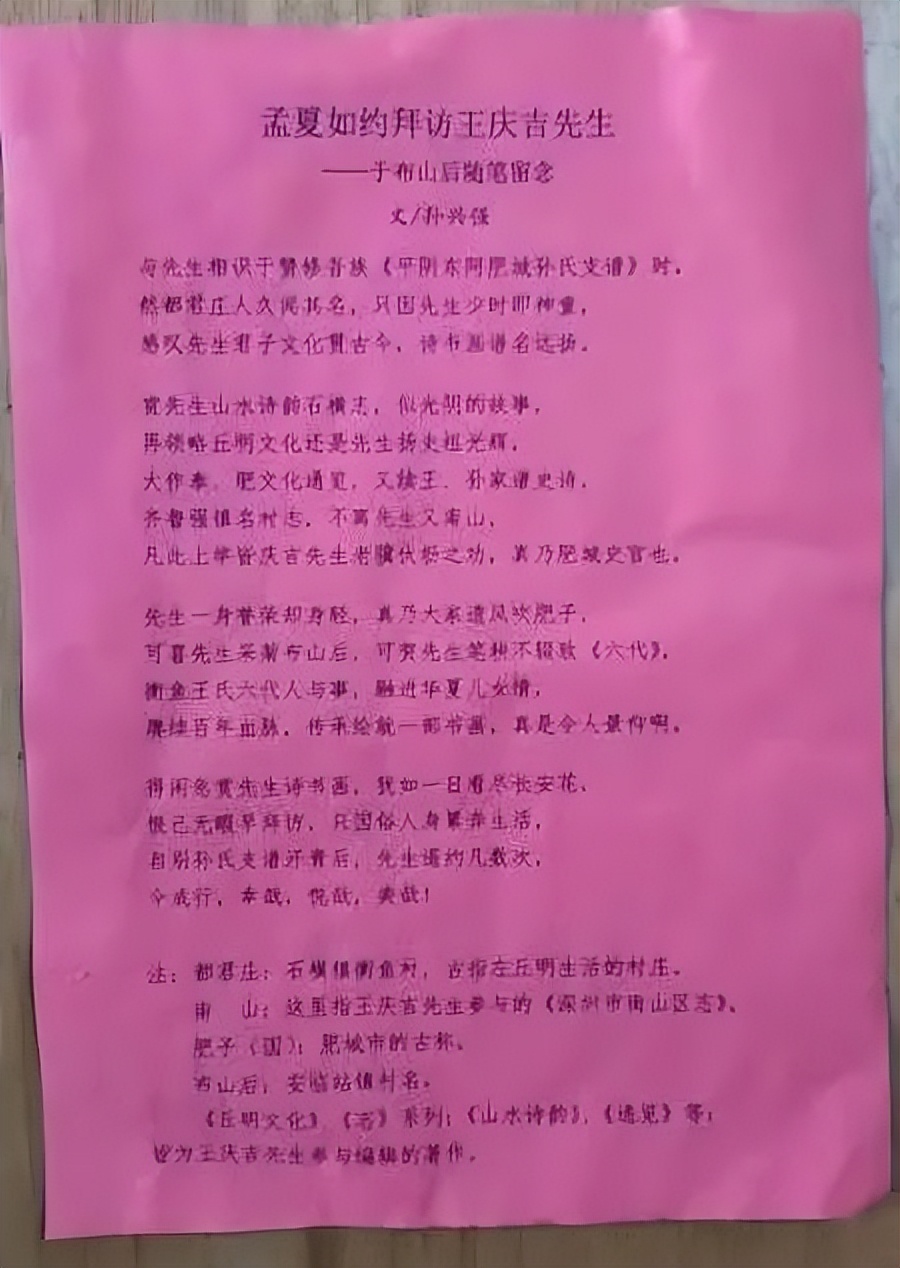 孟夏如约拜访王庆吉先生
——于布山后随笔留念
文/孙兴强
与先生相识于赞修吾族《平阴东阿肥城孙氏支谱》时，
然都君庄人久闻其名，只因先生少时即神童，
感叹先生君子文化贯古今，诗书画谱名远扬。
赏先生山水诗韵石横志，似光阴的故事，
再领略丘明文化还是先生扬史祖光辉，
大作泰、肥文化通览，又续王、孙家谱史诗，
齐鲁强镇名村志，不离先生又南山，
凡此上举皆庆吉先生老骥伏枥之功，真乃肥城史官也。
先生一身誉荣却身轻，真乃大家遗风吹肥子，
可喜先生采菊布山后，可贺先生笔耕不辍歌《六代》，
衡鱼王氏六代人与事，融进华夏儿女情，
赓续百年血脉，传承绘就一部书画，真是令人景仰啊。
得闲兔赏先生诗书画，我如一日看尽长安花，
恨己无暇早拜访，只因俗人身累奔生活，
自别孙氏支谱汗青后，先生邀约几数次，
今成行，幸哉，悦哉，美哉！
注：都君庄：石横镇衡鱼村，古指左丘明生活的村庄。
南 山：这里指王庆吉先生参与的《深圳市南山区志》。
肥子（国）：肥城市的古称。
布山后：安临站镇村名。
《丘明文化》《志》系列；《山水诗韵》，《通览》等；
皆为王庆吉先生参与编辑的著作。